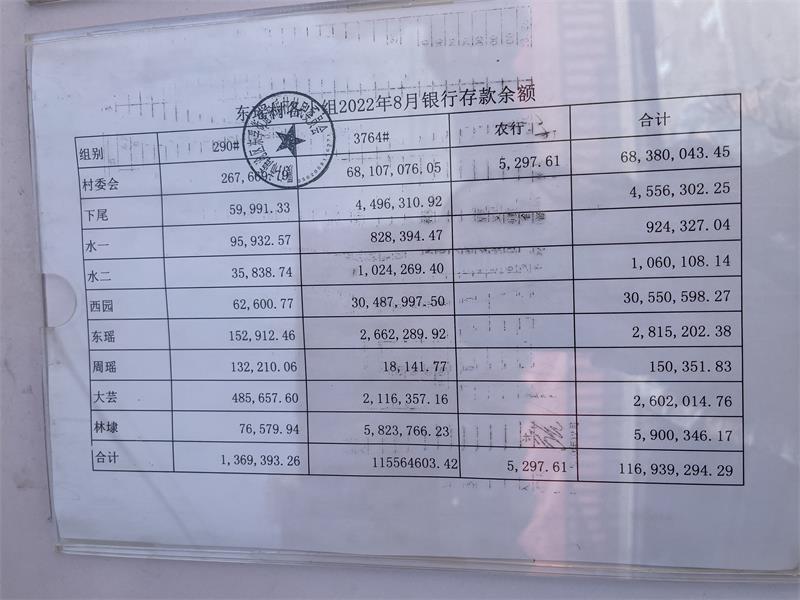 东瑶村各小组2022年8月银行存款余额
组别 290# 3764# 农行 合计
村委会 267,669.79 68,107,076.05 5,297.61 68,380,043.45
下尾 59,991.33 4,496,310.92 4,556,302.25
水一 95,932.57 828,394.47 924,327.04
水二 35,838.74 1,024,269.40 1,060,108.14
西园 62,600.77 30,487,997.50 30,550,598.27
东瑶 152,912.46 2,662,289.92 2,815,202.38
周瑶 132,210.06 18,141.77 150,351.83
大芸 485,657.60 2,116,357.16 2,602,014.76
林埭 76,579.94 5,823,766.23 5,900,346.17
合计 1,369,393.26 115564603.42 5,297.61 116,939,294.29